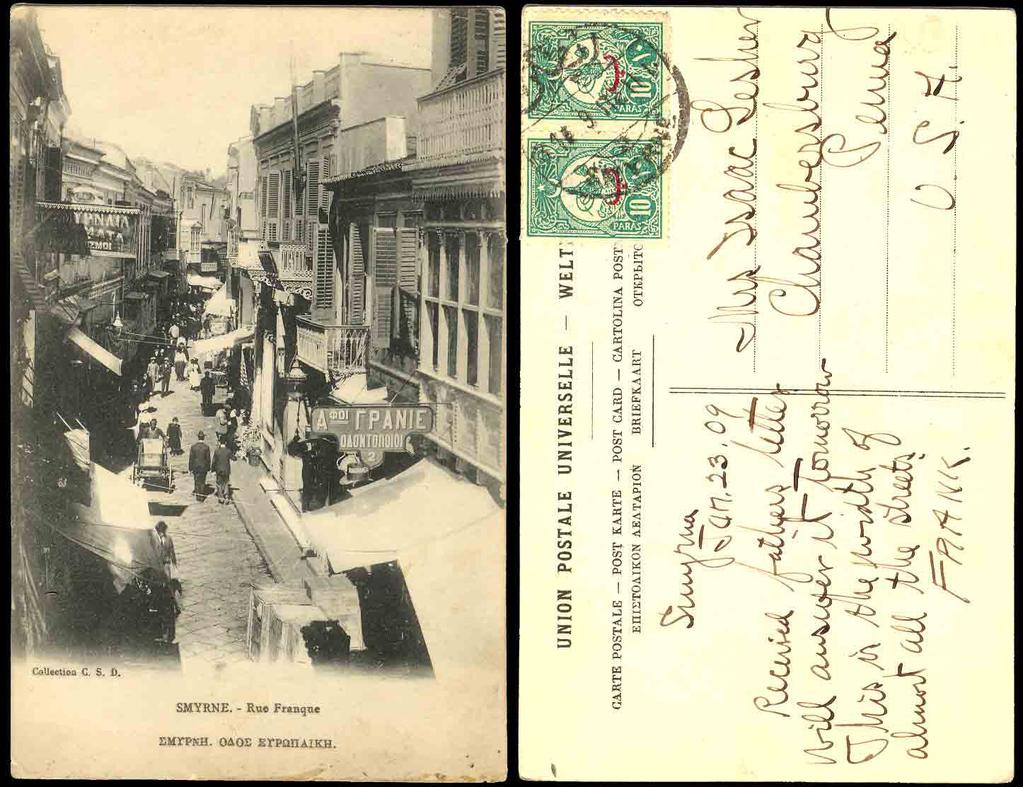 ΣΜΟΙ
Αφοι ΓΡΑΝΙΕ
ΟΔΟΝΤΟΠΟΙΟΙ
2
Collection C. S. D.
SMYRNE. - Rue Franque
ΣΜΥΡΝΗ. ΟΔΟΣ ΕΥΡΩΠΑΙΚΗ.
10 PARAS 10
10 PARAS 10
UNION POSTALE UNIVERSELLE — WELT
CARTE POSTALE — POST KARTE — POST CARD — CARTOLINA POST
ΕΠΙΣΤΟΛΙΚΟΝ ΔΕΛΤΑΡΙΟΝ BRIEFKAART ОТКРЫТО
Smyrna
Jan. 23. 09
Received fathers letter
Will answer it Tomorrow
This is the width of
almost all the streets
FRANK.
Mrs Isaac Lesher
Chambersburg
Penna
U. S. A.